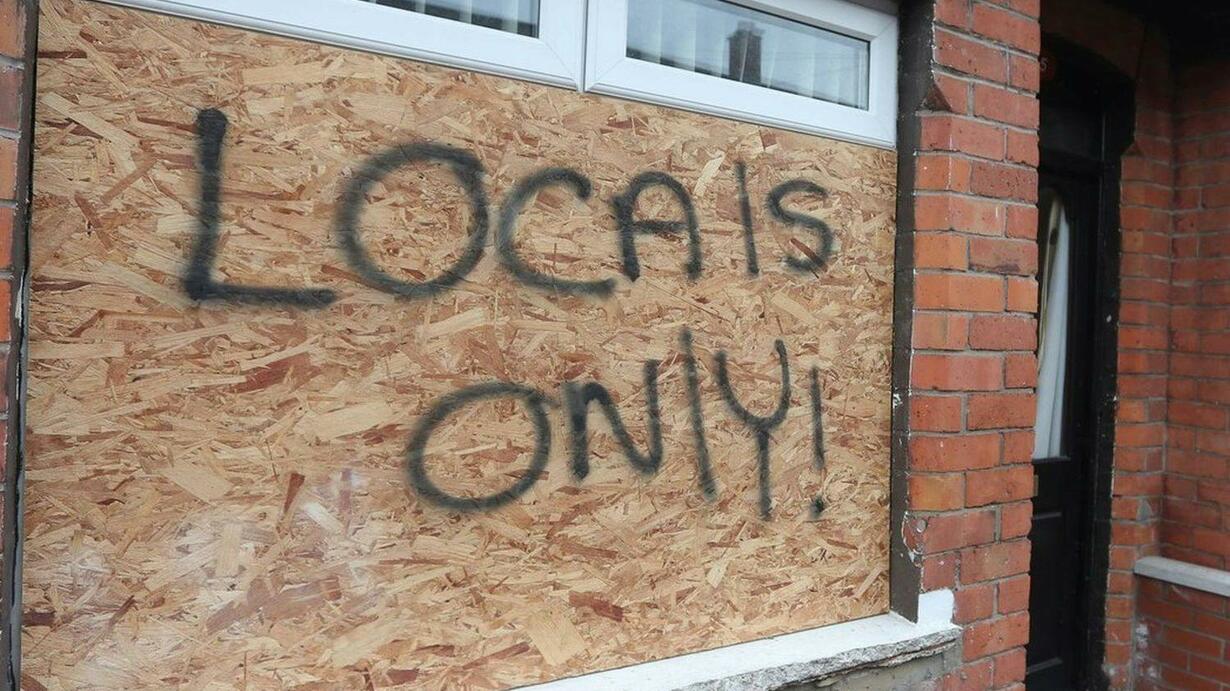 LOCAlS
ONlY!